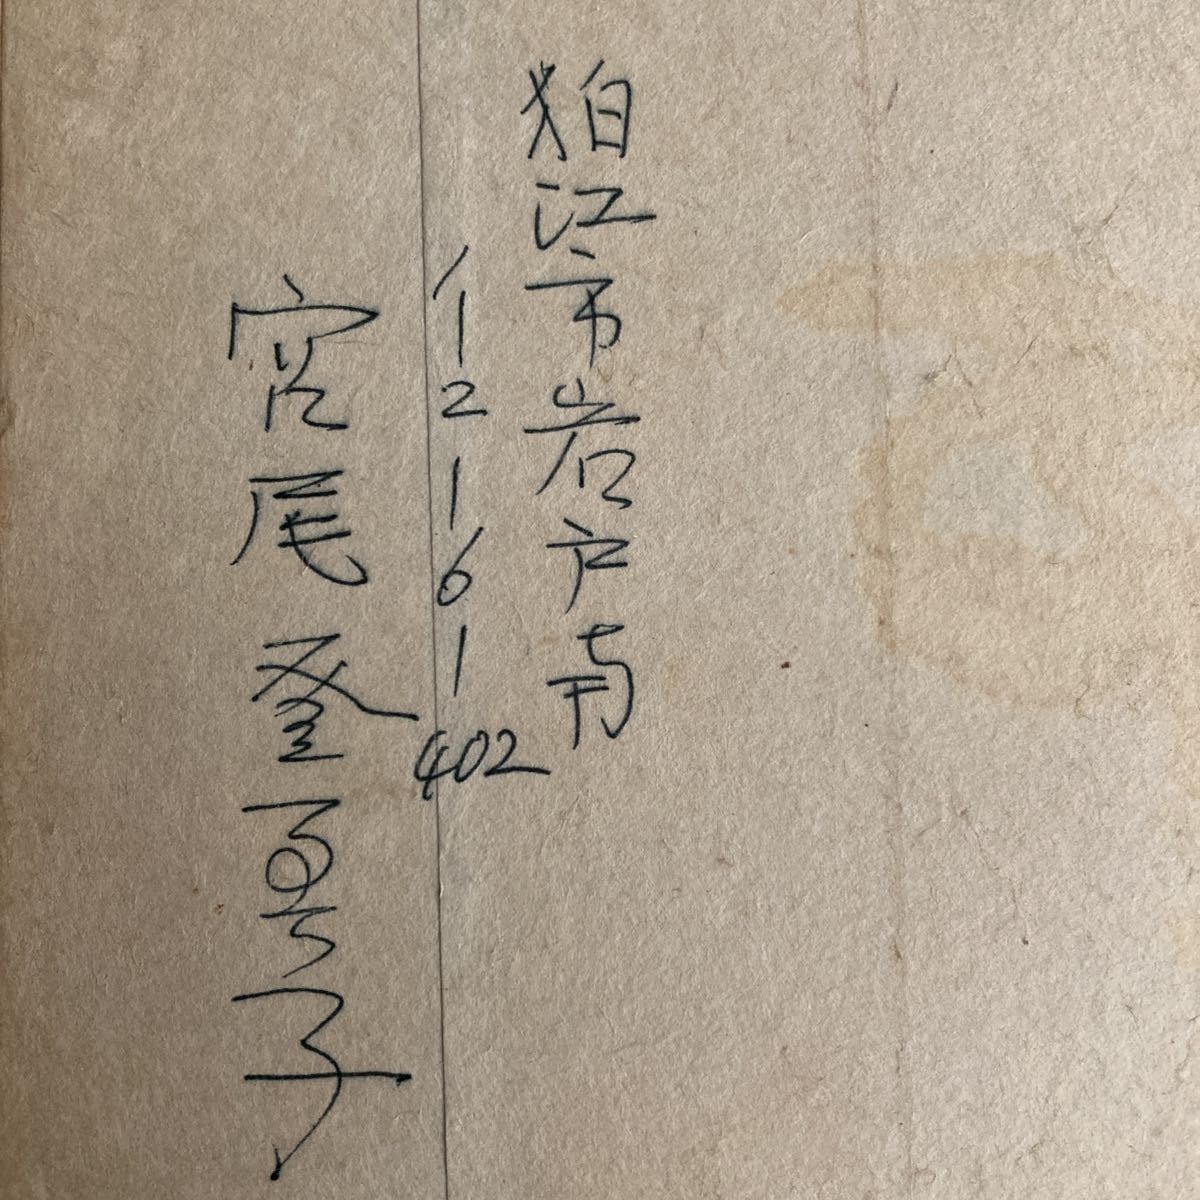 狛江市岩戸南
1-2-16-1
402
宮尾登美子